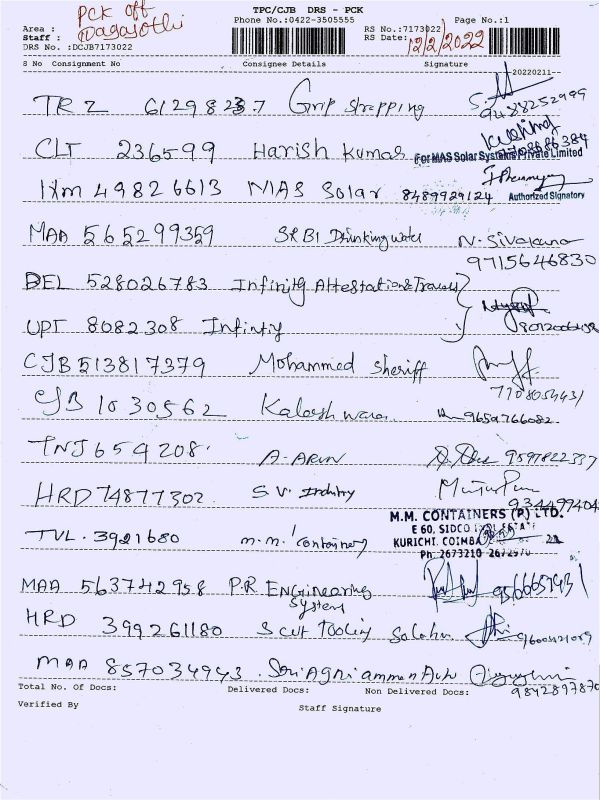 PCK off
TPC/CJB DRS - PCK
Area :
Phone No.:0422-3505555
Page No.:1
Staff :
RS No.:7173022
DRS No. :DCJB7173022
RS Date: 12/2/2022
S No Consignment No Consignee Details Signature
20220211
TRZ 612982 Grip strapping
9488252999
CLT 236599 Harish Kumar
For MAS Solar Systems Private Limited
IXM 49826613 MAS Solar 8489929124 Authorized Signatory
MAA 565299359 SRBI Drinking water N. Sivakana
9715646830
DEL 528026783 Infinity Attestation & Travels
UPT 8082308 Infinity
CJB 513817379 Mohammed Sheriff
7708054431
CJB 1030562 9659766082
TNJ 654208 A. ARUN 9597822337
HRD 74877302 S.V. Industry
934499404
M.M. CONTAINERS (P) LTD.
E 60, SIDCO
TVL. 3921680 m.m. Container KURICHI, COIMBA 21
Ph: 2673210
MAA 563742958 P.R ENGineering
System
HRD 399261180 S cut Tooling
MAA 857034943 Sri Agni amman Auto
9842897870
Total No. Of Docs: Delivered Docs: Non Delivered Docs:
Verified By Staff Signature